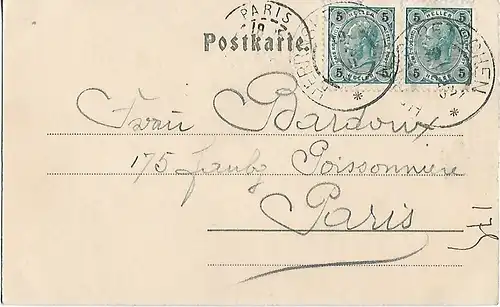 PARIS
Postkarte.
5 HELLER 5
5 HELLER 5
Frau Bardoux
175 faubg Poissonnière
Paris
175